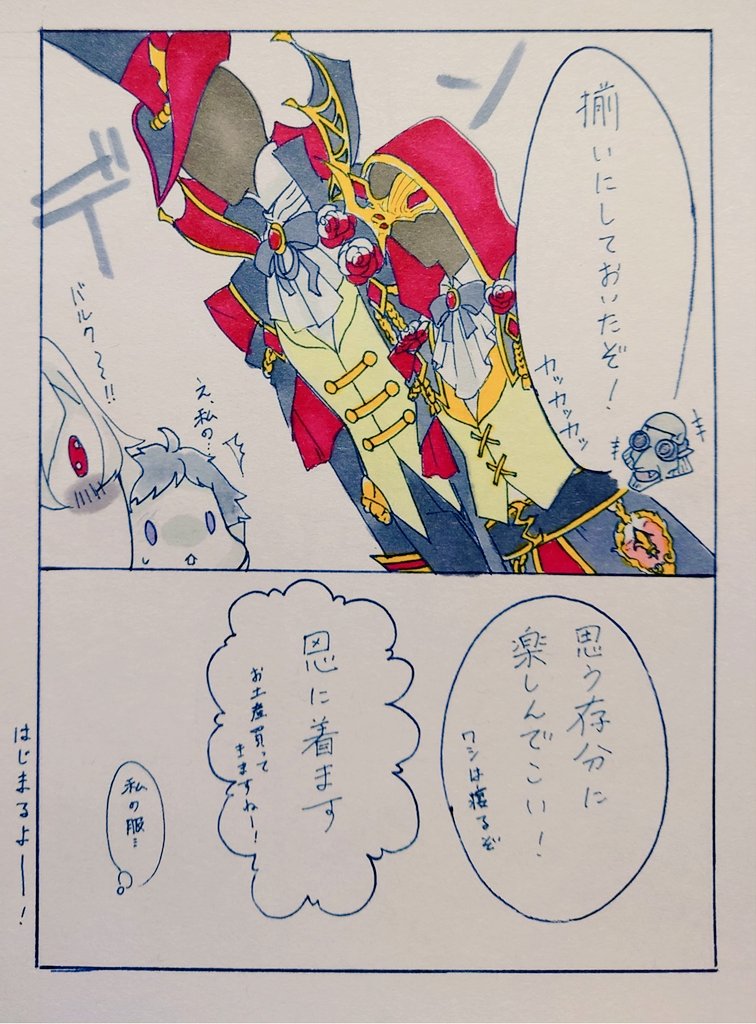 揃いにしておいたぞ!
カッカッカッ
デデーン
え、私の…
バルク〜〜!!
思う存分に
楽しんでこい!
ワシは寝るぞ
恩に着ます
お土産買って
きますねー!
私の服…
はじまるよー!